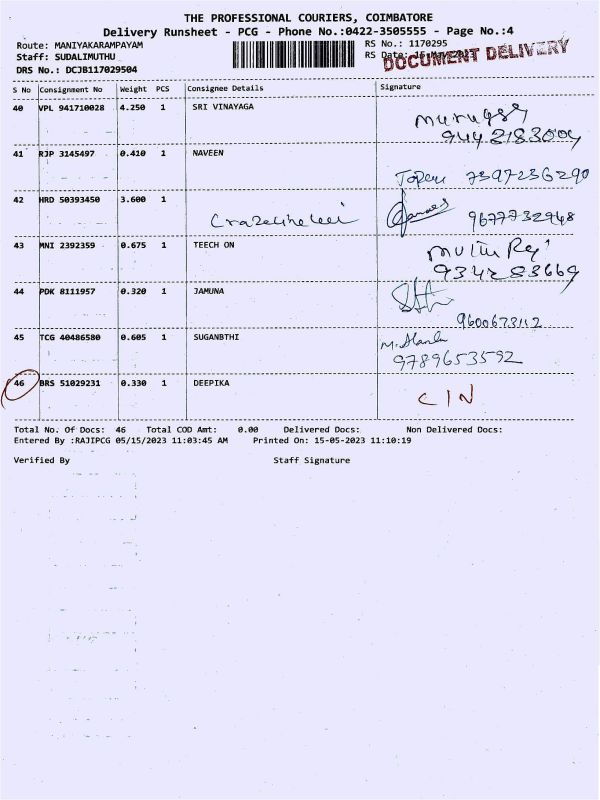 THE PROFESSIONAL COURIERS, COIMBATORE
Delivery Runsheet - PCG - Phone No.:0422-3505555 - Page No.:4
Route: MANIYAKARAMPAYAM
Staff: SUDALIMUTHU
DRS No.: DCJB117029504
RS No.: 1170295
RS Date:
DOCUMENT DELIVERY
S No Consignment No Weight PCS Consignee Details Signature
40 VPL 941710028 4.250 1 SRI VINAYAGA
41 RJP 3145497 0.410 1 NAVEEN
7397236290
42 HRD 50393450 3.600 1
9677732948
43 MNI 2392359 0.675 1 TEECH ON
44 PDK 8111957 0.320 1 JAMUNA
9600673112
45 TCG 40486580 0.605 1 SUGANBTHI
9789653592
46 BRS 51029231 0.330 1 DEEPIKA
CIN
Total No. Of Docs: 46 Total COD Amt: 0.00 Delivered Docs: Non Delivered Docs:
Entered By :RAJIPCG 05/15/2023 11:03:45 AM Printed On: 15-05-2023 11:10:19
Verified By Staff Signature